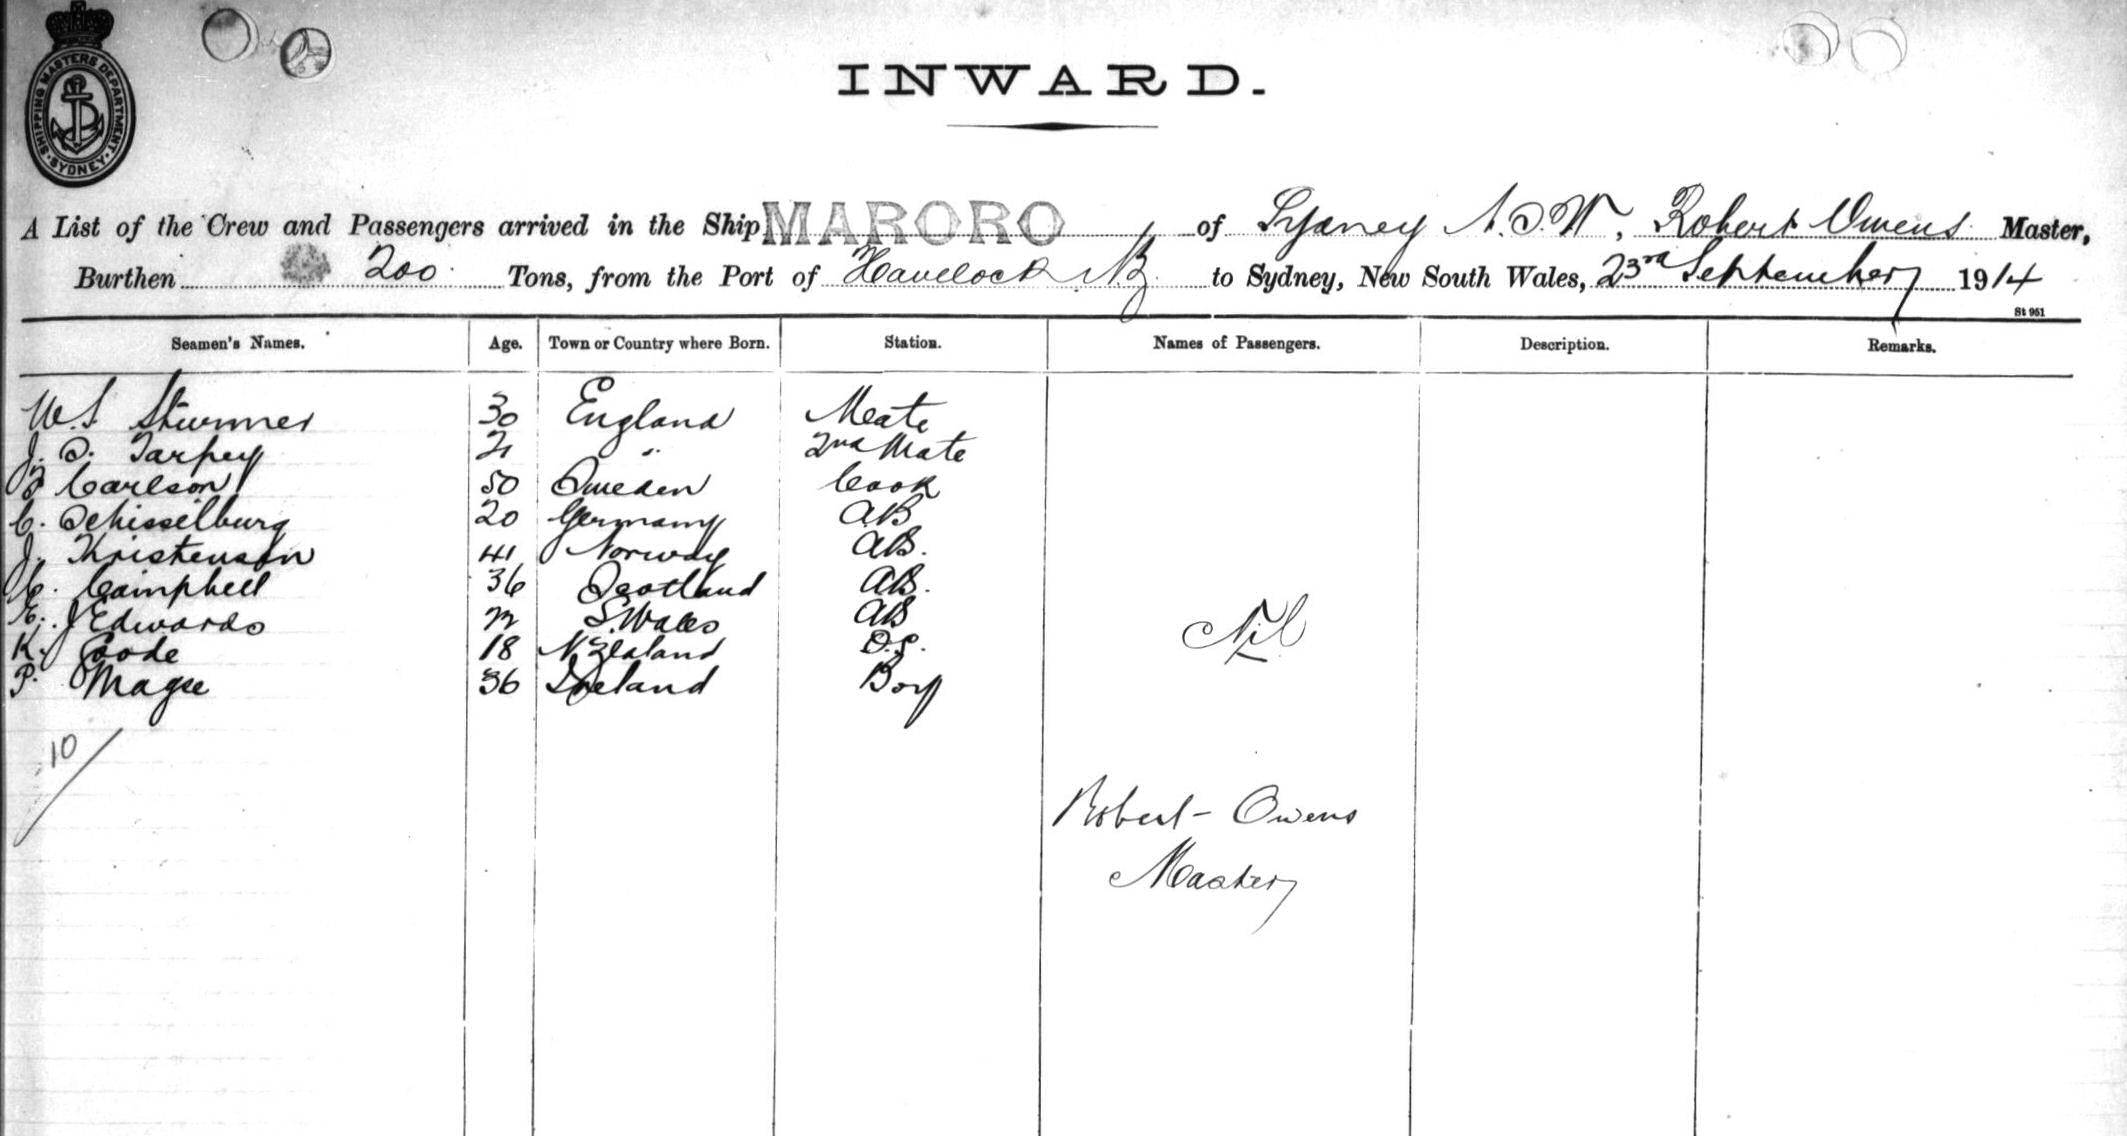 SHIPPING MASTERS DEPARTMENT
SYDNEY
INWARD.
A List of the Crew and Passengers arrived in the Ship MARORO of Sydney N.S.W, Robert Owens Master,
Burthen 200 Tons, from the Port of Havelock N.Z to Sydney, New South Wales, 23rd September 1914
St 951
Seamen's Names. Age. Town or Country where Born. Station. Names of Passengers. Description. Remarks.
W.S. Sturmer 30 England Mate
J. S. Tarpey 21 " 2nd Mate
Carlson 50 Sweden Cook
C. Schisselburg 20 Germany AB
J. Kristenson 41 Norway AB.
C. Campbell 36 Scotland AB.
E. J Edwards S. Wales AB
K. Goode 18 N Zealand O.S.
P. Magee 36 Ireland Boy
Nil
10
Robert Owens
Master